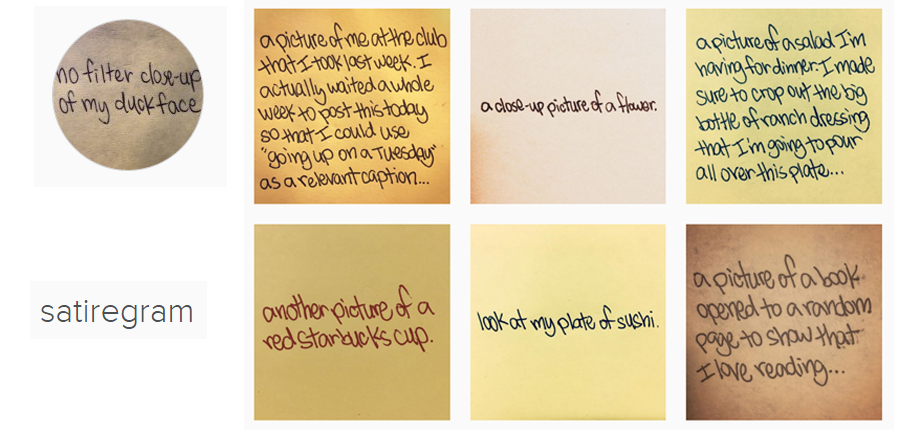 no filter close-up
of my duckface
satiregram
a picture of me at the club
that I took last week. I
actually waited a whole
week to post this today
so that I could use
"going up on a Tuesday"
as a relevant caption...
a close-up picture of a flower.
a picture of a salad I'm
having for dinner. I made
sure to crop out the big
bottle of ranch dressing
that I'm going to pour
all over this plate...
another picture of a
red starbucks cup.
look at my plate of sushi.
a picture of a book
opened to a random
page to show that
I love reading...